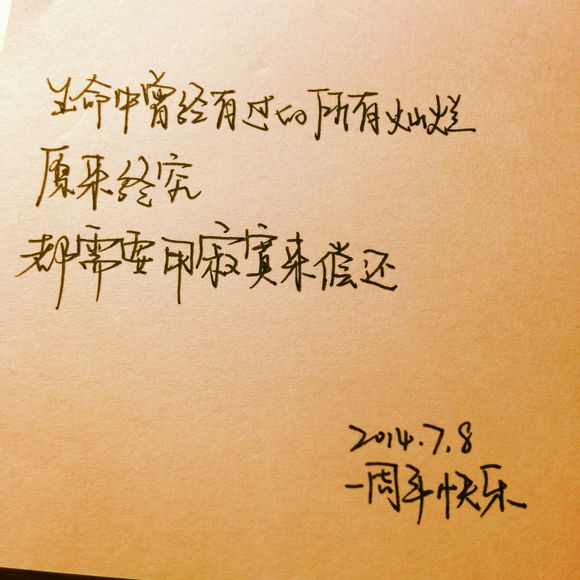 生命中曾经有过的所有灿烂
原来终究
都需要用寂寞来偿还
2014.7.8
一周年快乐